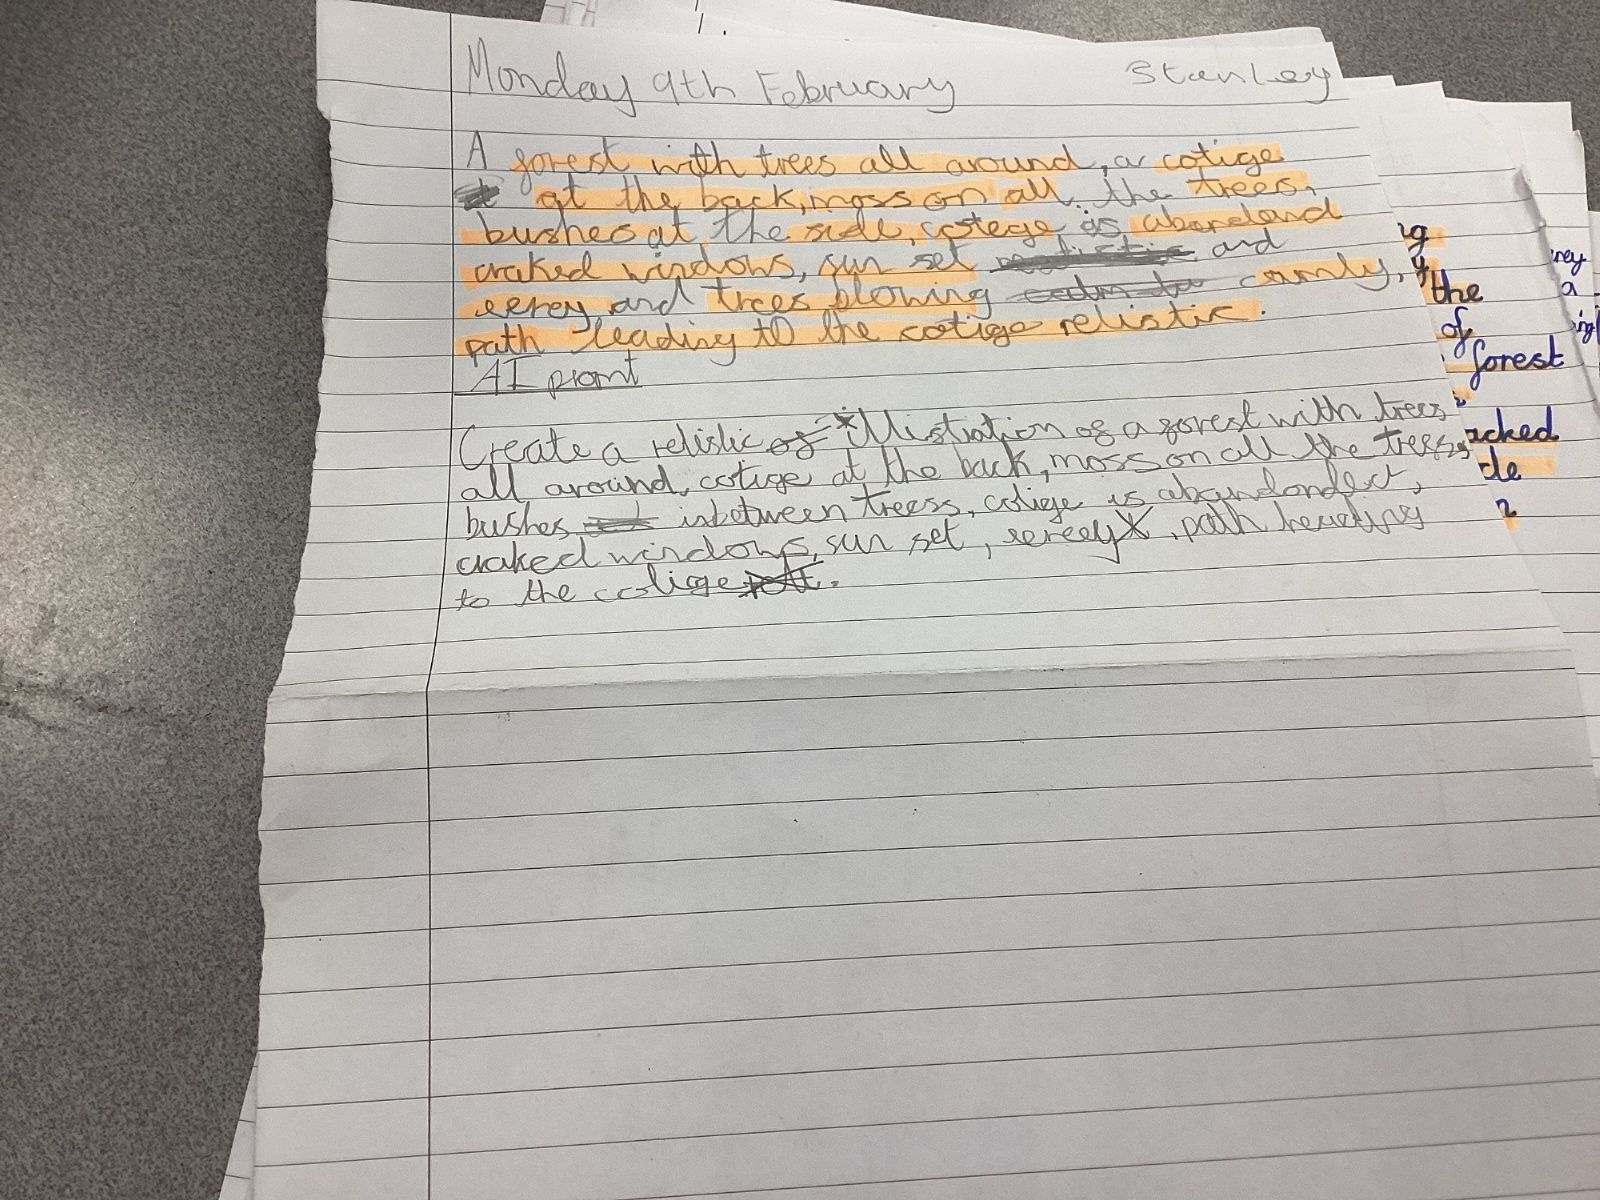 Monday 9th February Stanley
A forest with trees all around, a cotige
at the back, moss on all the trees.
bushes at the side, cotege is abandand
craked windows, sun set and
eerey and trees blowing carmly,
path leading to the cotige relistic.
AI promt
Create a relistic illistration of a forest with trees
all around, cotige at the back, moss on all the trees,
bushes inbetween treess, cotige is abandonded,
craked windows, sun set, path heading
to the cotige.
the
of
forest
acked
de
rey
a